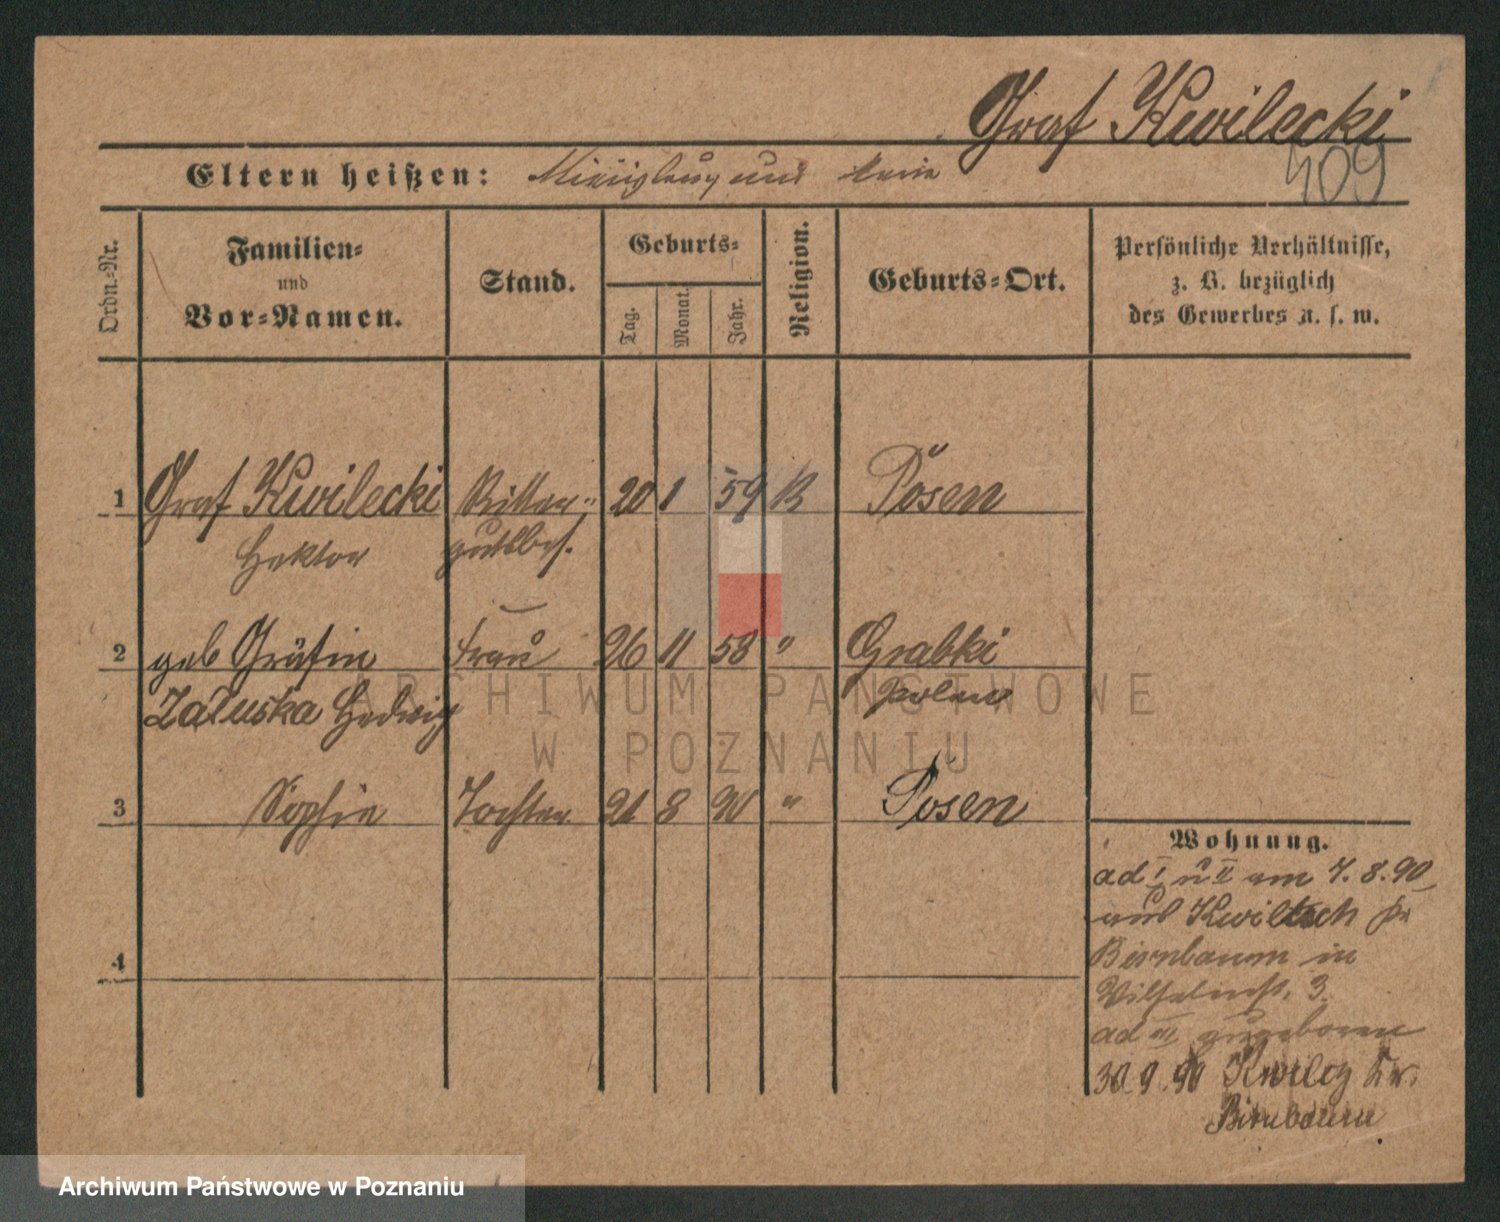 Graf Kwilecki
409
Eltern heißen: und
Ordn.-Nr.
Familien-
und
Vor-Namen.
Stand.
Geburts-
Tag.
Monat.
Jahr.
Religion.
Geburts-Ort.
Persönliche Verhältnisse,
z. B. bezüglich
des Gewerbes u. s. w.
1 Graf Kwilecki Ritter- 20 1 59 K Posen
Hektor gutsbes.
2 geb Gräfin Frau 26 11 58 " Grabki
Załuska Hedwig Polen
3 Sophie Tochter 21 8 90 " Posen
4
Wohnung.
ad I u II am 7. 8. 90
aus Kwiltsch
Birnbaum in
Wilhelmst. 3.
ad III zugeboren
30.9.90 Kwilcz Kr.
Birnbaum
ARCHIWUM PAŃSTWOWE
W POZNANIU
Archiwum Państwowe w Poznaniu